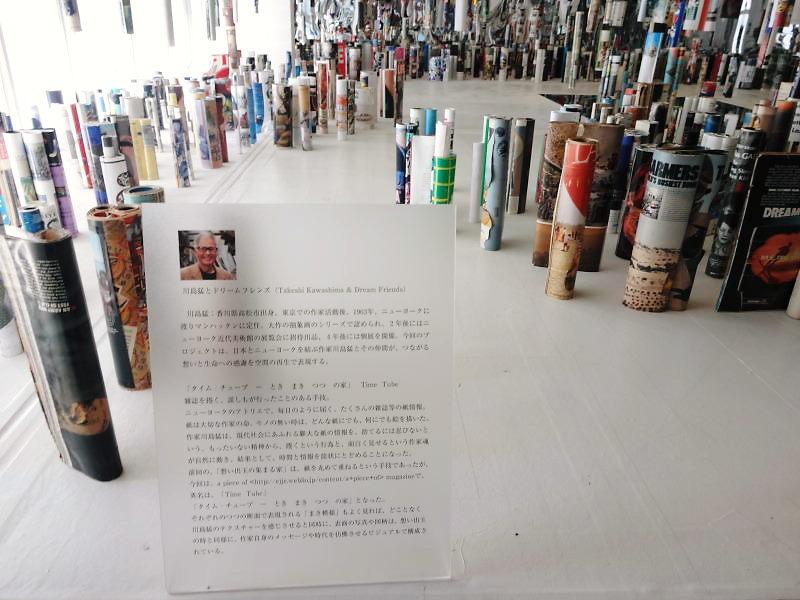 川島猛とドリームフレンズ (Takeshi Kawashima & Dream Friends)
川島猛：香川県高松市出身。東京での作家活動後、1963年、ニューヨークに
渡りマンハッタンに定住。大作の抽象画のシリーズで認められ、2年後にはニ
ューヨーク近代美術館の展覧会に招待出品、4年後には個展を開催。今回のプ
ロジェクトは、日本とニューヨークを結ぶ作家川島猛とその仲間が、つながる
想いと生命への感謝を空間の再生で表現する。
「タイム・チューブ ー とき まき つつ の家」 Time Tube
雑誌を捲く、誰しもが行ったことのある手技。
ニューヨークのアトリエで、毎日のように届く、たくさんの雑誌等の紙情報。
紙は大切な作家の命。モノの無い時は、どんな紙にでも、何にでも絵を描いた。
作家川島猛は、現代社会にあふれる膨大な紙の情報を、捨てるには忍びないと
いう、もったいない精神から、捲くという行為と、面白く見せるという作家魂
が自然に動き、結果として、時間と情報を筒状にとどめることになった。
前回の、「想い出玉の集まる家」は、紙を丸めて重ねるという手技であったが、
今回は、a piece of <http://ejje.weblio.jp/content/a+piece+of> magazineで、
英名は、「Time Tube」
「タイム・チューブ ー とき まき つつ の家」となった。
それぞれのつつの断面で表現される「まき模様」もよく見れば、どことなく
川島猛のテクスチャーを感じさせると同時に、表面の写真や図柄は、想い出玉
の時と同様に、作家自身のメッセージや時代を彷彿させるビジュアルで構成さ
れている。
ARMERS
DREAM